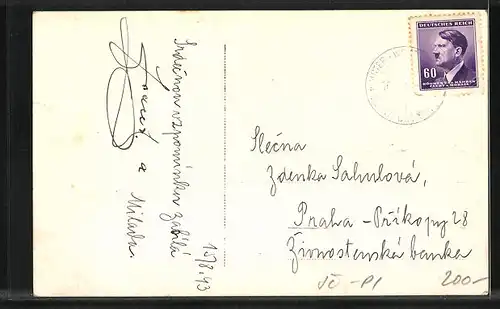 Srdečnou vzpomínku zasílá
Franta
a
Milada.
15/8.43
DEUTSCHES REICH
60
BÖHMEN u. MÄHREN
ČECHY a MORAVA
Slečna
Zdenka Sahulová,
Praha - Příkopy 28
Živnostenská banka
200-